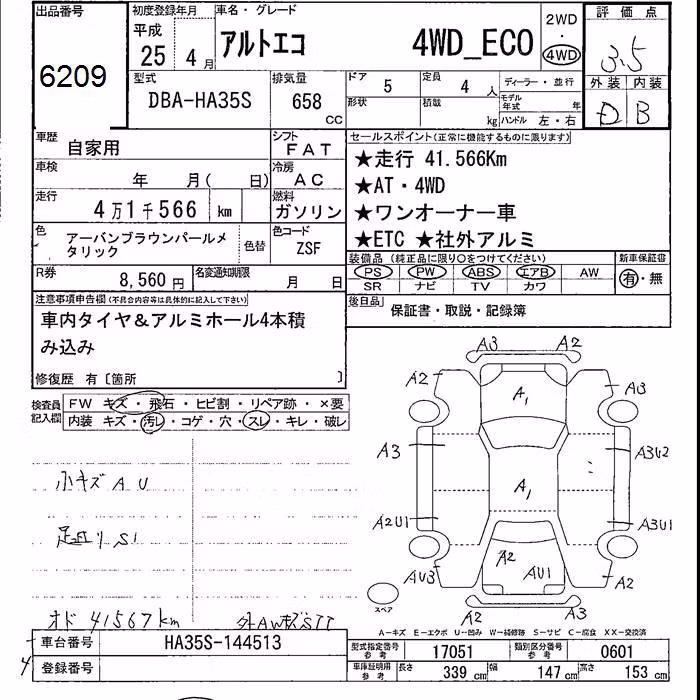 出品番号
6209
初度登録年月
平成
25年 4月
車名・グレード
アルトエコ 4WD_ECO
2WD
・
4WD
評価点
3.5
外装 内装
D B
型式
DBA-HA35S
排気量
658
CC
ドア
5
定員
4 人
形状
積載
kg
ディーラー・並行
モデル
年式 年
ハンドル 左・右
車歴
自家用
シフト
FAT
車検
年 月( 日)
冷房
AC
走行
4万1千566 km
燃料
ガソリン
色
アーバンブラウンパールメ
タリック
色替
色コード
ZSF
R券
8,560円
名変通知期限
月 日
セールスポイント(正常に機能するものに限ります)
★走行 41.566Km
★AT・4WD
★ワンオーナー車
★ETC ★社外アルミ
装備品 (純正品に限り○をつけてください)
PS PW ABS エアB AW
SR ナビ TV カワ
新車保証書
有・無
後日品
保証書・取説・記録簿
注意事項申告欄(不具合内容等は具体的に記入して下さい)
車内タイヤ&アルミホール4本積
み込み
修復歴 有〔箇所 〕
検査員
記入欄
FW キズ・飛石・ヒビ割・リペア跡・×要
内装 キズ・汚レ・コゲ・穴・スレ・キレ・破レ
小キズ A U
足廻り S1
オド 41567km
外AWキズSTT
A3 A2
A2 A1 A3
A3 A3U2
A1
A2U1 A3U1
A2 AU1
AU3 A2
A2 A3
スペア
A-キズ E-エクボ U-凹み W-補修跡 S-サビ C-腐食 XX-交換済
車台番号
HA35S-144513
登録番号
4
型式指定番号
参考
17051
類別区分番号
参考
0601
車庫証明用
参考
長さ 339 cm 幅 147 cm 高さ 153 cm